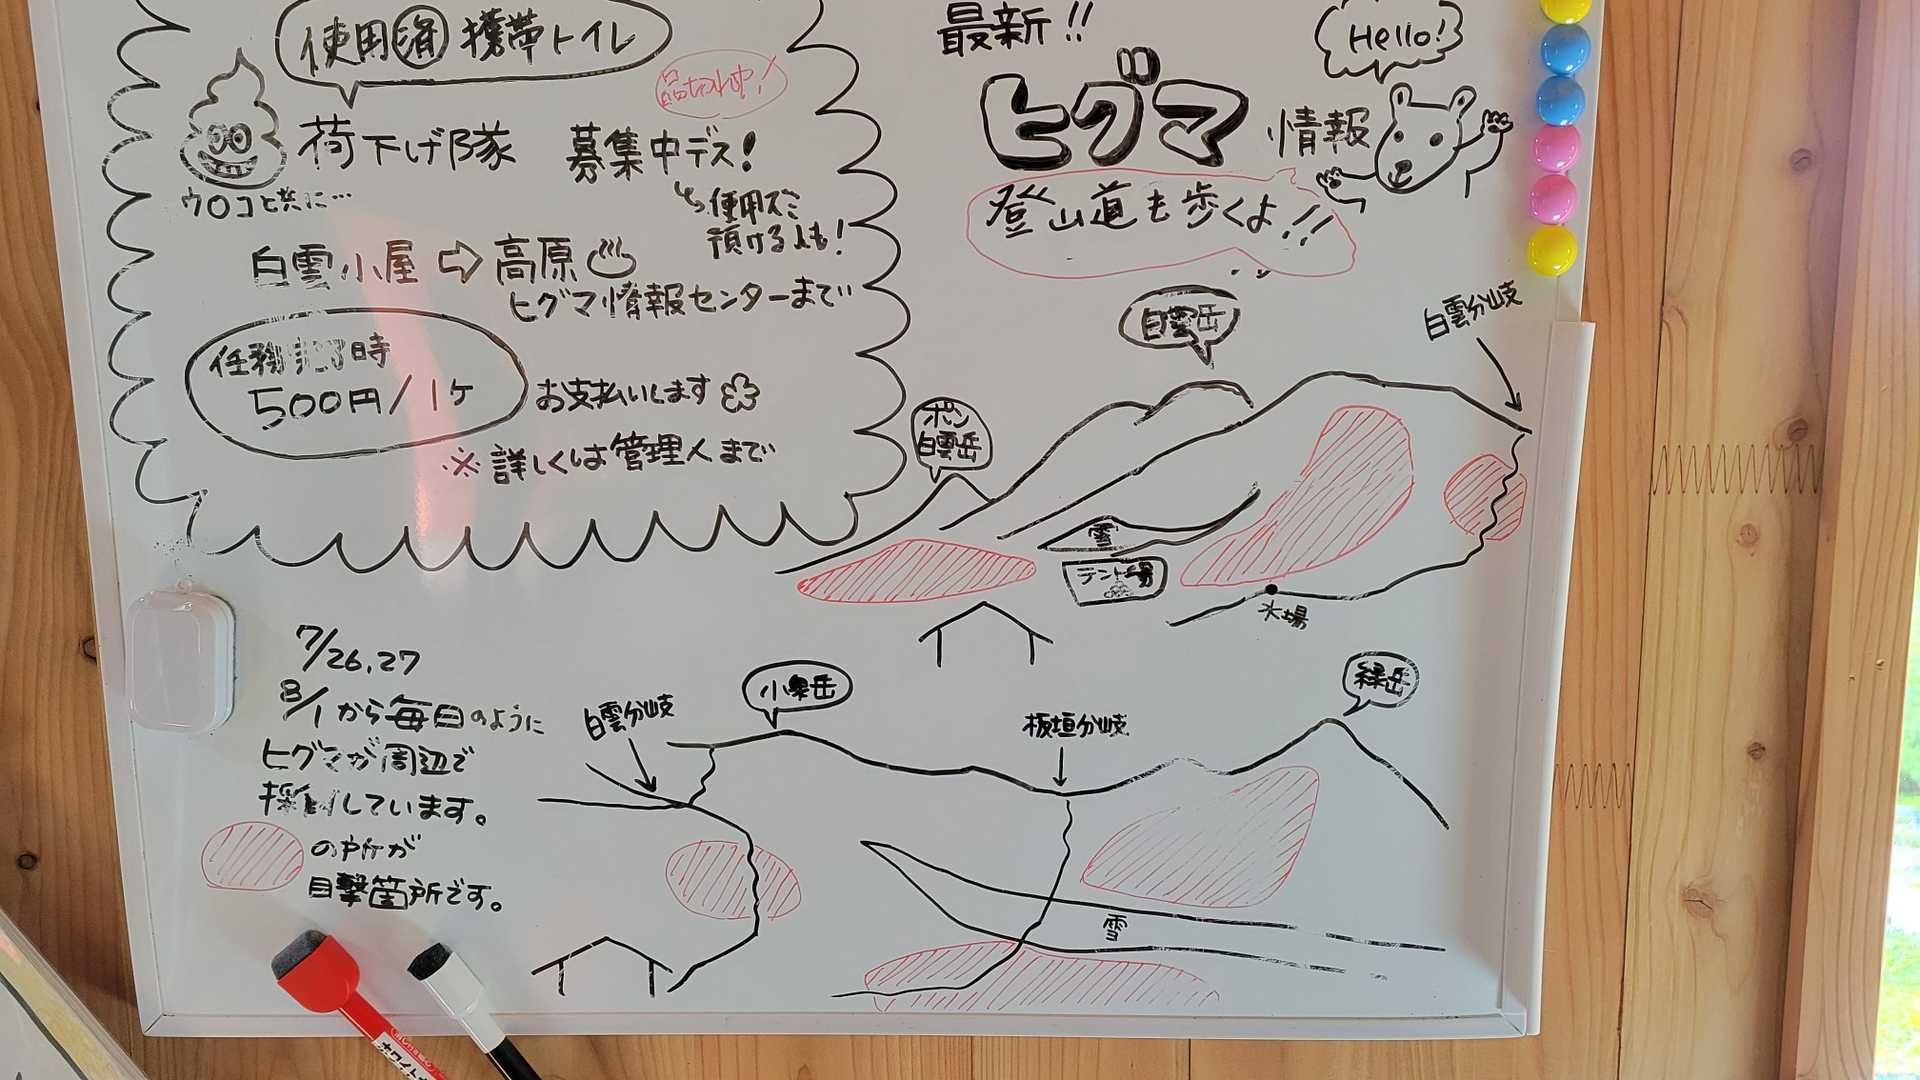 使用済携帯トイレ
品切れ中!
荷下げ隊 募集中デス!
ウロコと共に…
使用ズミ
預ける人も!
白雲小屋 ⇨ 高原♨
ヒグマ情報センターまで
任務完了時
500円/1ケ お支払いします
※詳しくは管理人まで
最新!!
ヒグマ 情報
Hello!
登山道も歩くよ!!
白雲岳
白雲分岐
ポン
白雲岳
雪
テント場
水場
7/26,27
8/1から毎日のように
ヒグマが周辺で
採食しています。
の所が
目撃箇所です。
白雲分岐
小泉岳
板垣分岐
緑岳
雪